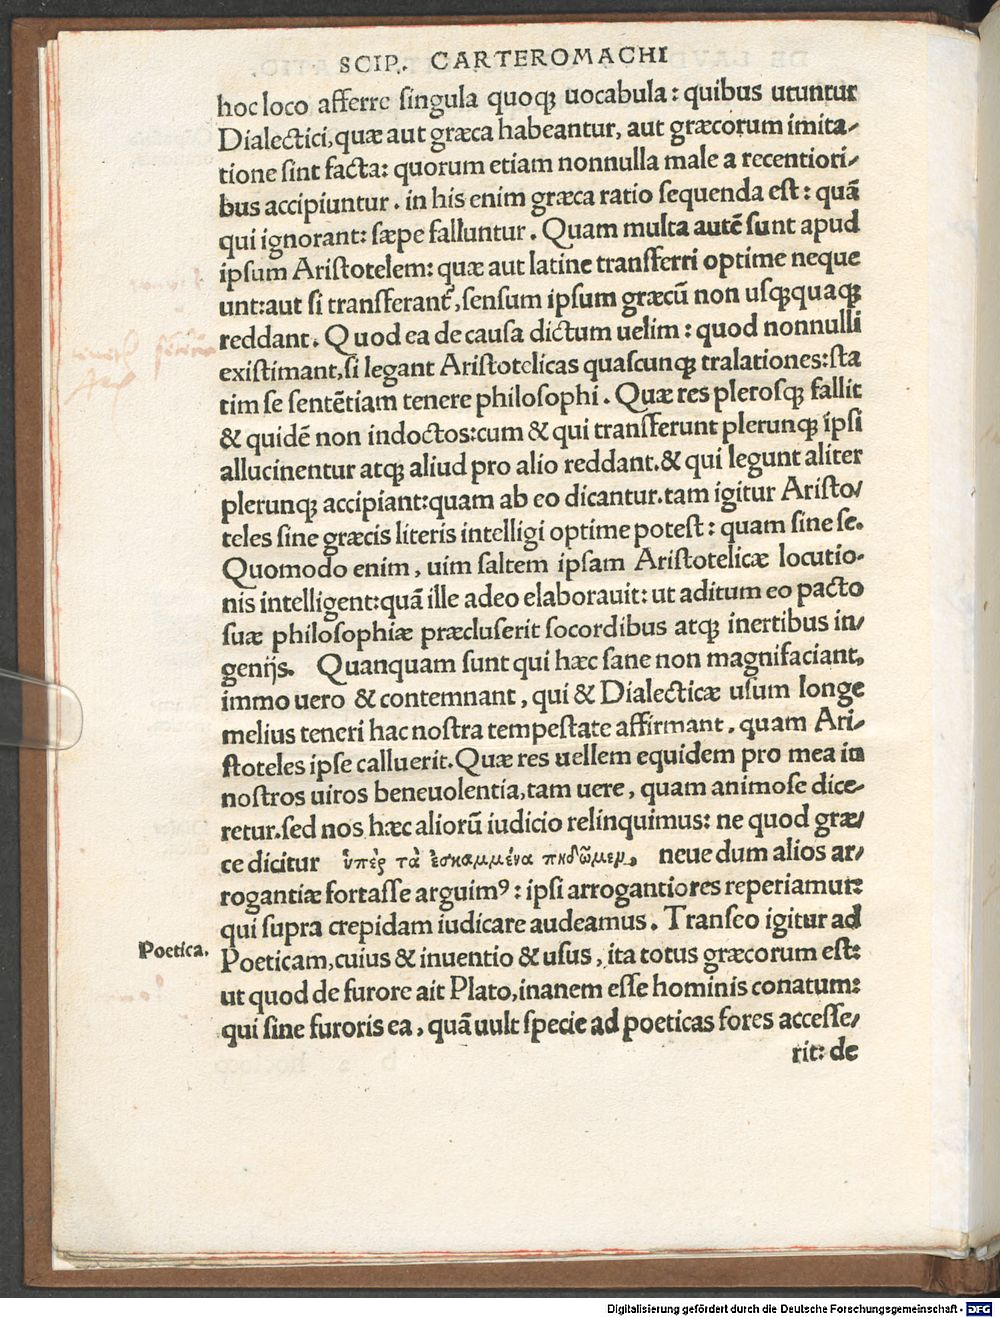 SCIP. CARTEROMACHI
hoc loco afferre singula quoqȝ uocabula: quibus utuntur
Dialectici, quæ aut græca habeantur, aut græcorum imita/
tione sint facta: quorum etiam nonnulla male a recentiori/
bus accipiuntur. in his enim græca ratio sequenda est: quã
qui ignorant: sæpe falluntur. Quam multa autẽ sunt apud
ipsum Aristotelem: quæ aut latine transferri optime neque
unt: aut si transferant̃, sensum ipsum græcũ non usqȝquaqȝ
reddant. Quod ea de causa dictum uelim: quod nonnulli
existimant, si legant Aristotelicas quascunqȝ tralationes: sta
tim se sentẽtiam tenere philosophi. Quæ res plerosqȝ fallit
& quidẽ non indoctos: cum & qui transferunt plerunqȝ ipsi
allucinentur atqȝ aliud pro alio reddant. & qui legunt aliter
plerunqȝ accipiant: quam ab eo dicantur. tam igitur Aristo/
teles sine græcis literis intelligi optime potest: quam sine se.
Quomodo enim, uim saltem ipsam Aristotelicæ locutio-
nis intelligent: quã ille adeo elaborauit: ut aditum eo pacto
suæ philosophiæ præcluserit socordibus atqȝ inertibus in/
genijs. Quanquam sunt qui hæc sane non magnifaciant,
immo uero & contemnant, qui & Dialecticæ usum longe
melius teneri hac nostra tempestate affirmant, quam Ari/
stoteles ipse calluerit. Quæ res uellem equidem pro mea in
nostros uiros beneuolentia, tam uere, quam animose dice-
retur. sed nos hæc aliorũ iudicio relinquimus: ne quod græ/
ce dicitur ὑπὲρ τὰ ἐσκαμμένα πηδῶμεν, neue dum alios ar/
rogantiæ fortasse arguimꝰ: ipsi arrogantiores reperiamur:
qui supra crepidam iudicare audeamus. Transeo igitur ad
Poetica.
Poeticam, cuius & inuentio & usus, ita totus græcorum est:
ut quod de furore ait Plato, inanem esse hominis conatum:
qui sine furoris ea, quã uult specie ad poeticas fores accesse/
rit: de
Digitalisierung gefördert durch die Deutsche Forschungsgemeinschaft - DFG